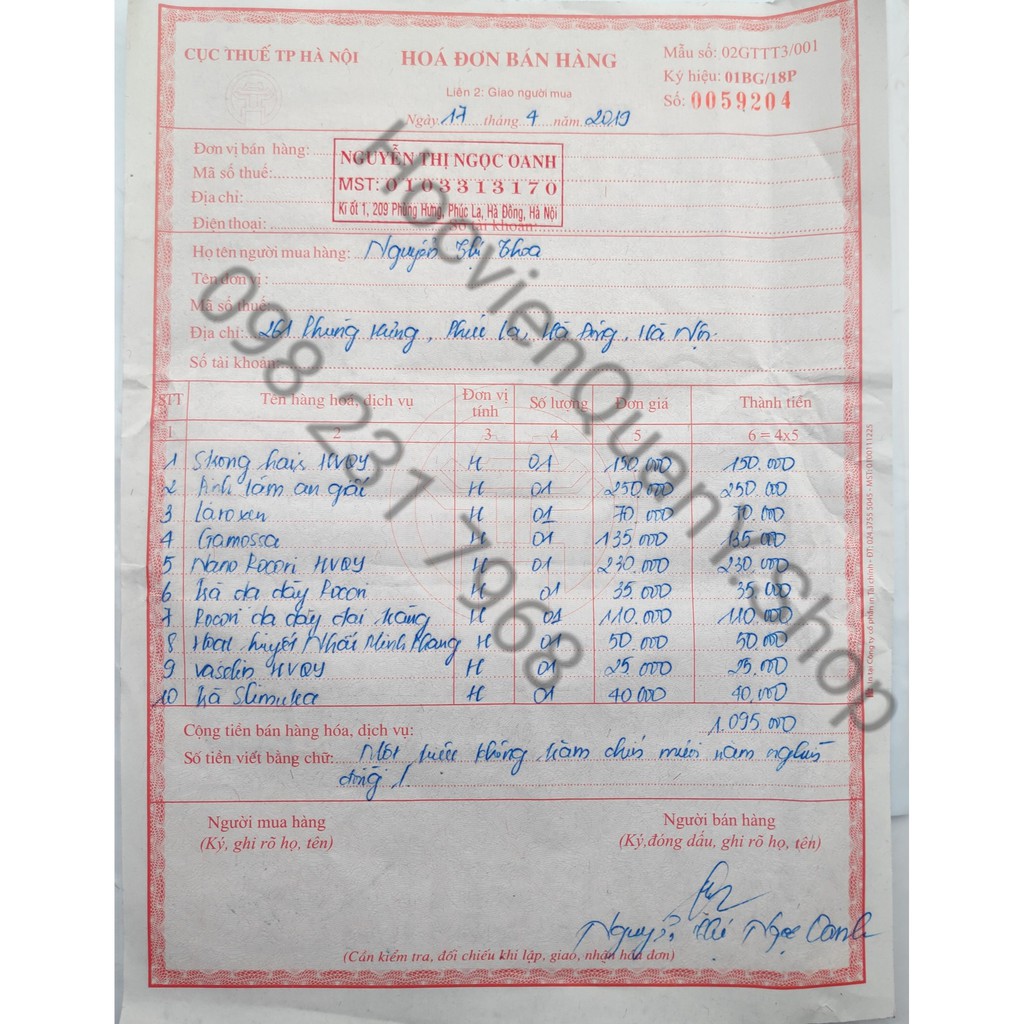 CỤC THUẾ TP HÀ NỘI
HOÁ ĐƠN BÁN HÀNG
Mẫu số: 02GTTT3/001
Liên 2: Giao người mua
Ký hiệu: 01BG/18P
Số: 0059204
Ngày 17 tháng 4 năm 2019
Đơn vị bán hàng:
NGUYỄN THỊ NGỌC OANH
Mã số thuế:
MST: 0103313170
Địa chỉ:
Ki ốt 1, 209 Phùng Hưng, Phúc La, Hà Đông, Hà Nội
Điện thoại: Số tài khoản:
Họ tên người mua hàng: Nguyễn Thị Thoa
Tên đơn vị:
Mã số thuế:
Địa chỉ: 261 Phùng Hưng, Phúc La, Hà Đông, Hà Nội
Số tài khoản:
STT Tên hàng hoá, dịch vụ Đơn vị tính Số lượng Đơn giá Thành tiền
1 2 3 4 5 6 = 4x5
1 HVQY H 01 150.000 150.000
2 H 01 250.000 250.000
3 Laroxen H 01 70.000 70.000
4 Gamossa H 01 135.000 135.000
5 Nano Rocori HVQY H 01 230.000 230.000
6 Trà dạ dày Rocori H 01 35.000 35.000
7 Rocori dạ dày đại tràng H 01 110.000 110.000
8 Hoạt huyết Nhất Minh Khang H 01 50.000 50.000
9 vaselin HVQY H 01 25.000 25.000
10 Trà Slimutea H 01 40.000 40.000
Cộng tiền bán hàng hóa, dịch vụ: 1.095.000
Số tiền viết bằng chữ: Một triệu không trăm chín mươi năm nghìn
đồng ./.
Người mua hàng
Người bán hàng
(Ký, ghi rõ họ, tên)
(Ký,đóng dấu, ghi rõ họ, tên)
Nguyễn Thị Ngọc Oanh
(Cần kiểm tra, đối chiếu khi lập, giao, nhận hóa đơn)
HocvienQuanY.Shop
098 231 7968